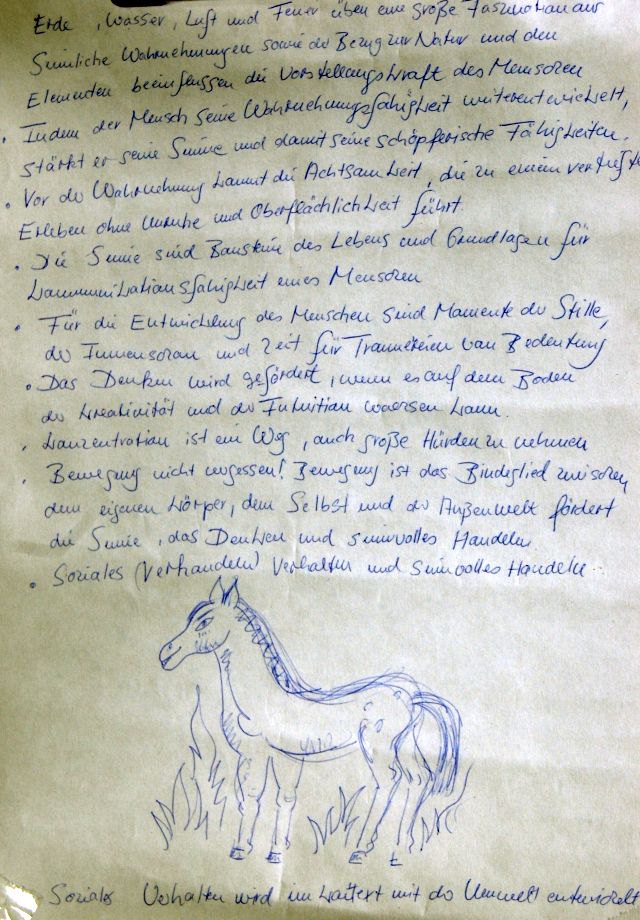 Erde, Wasser, Luft und Feuer üben eine große Faszination aus
Sinnliche Wahrnehmungen sowie der Bezug zur Natur und den
Elementen beeinflussen die Vorstellungskraft des Menschen
• Indem der Mensch seine Wahrnehmungsfähigkeit weiterentwickelt,
stärkt er seine Sinne und damit seine schöpferische Fähigkeiten.
• Vor der Wahrnehmung kommt die Achtsamkeit, die zu einem
Erleben ohne Unruhe und Oberflächlichkeit führt
• Die Sinne sind Bausteine des Lebens und Grundlagen für
Kommunikationsfähigkeit eines Menschen
• Für die Entwicklung des Menschen sind Momente der Stille,
der Innenschau und Zeit für Träumereien von Bedeutung
• Das Denken wird gefördert, wenn es auf dem Boden
der Kreativität und der Intuition wachsen kann.
• Konzentration ist ein Weg, auch große Hürden zu nehmen
• Bewegung nicht vergessen! Bewegung ist das Bindeglied zwischen
dem eigenen Körper, dem Selbst und der Außenwelt fördert
die Sinne, das Denken und sinnvolles Handeln
• Soziales (Verhandeln) Verhalten und sinnvolles Handeln
Soziales Verhalten wird im Kontext mit der Umwelt entwickelt